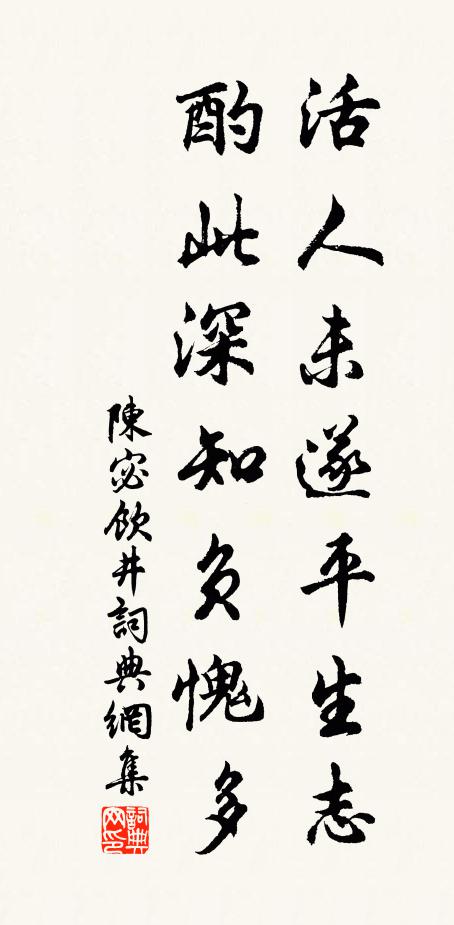 活人未遂平生志
酌此深知負愧多
陳宓飲井詞典網集
詞典网印